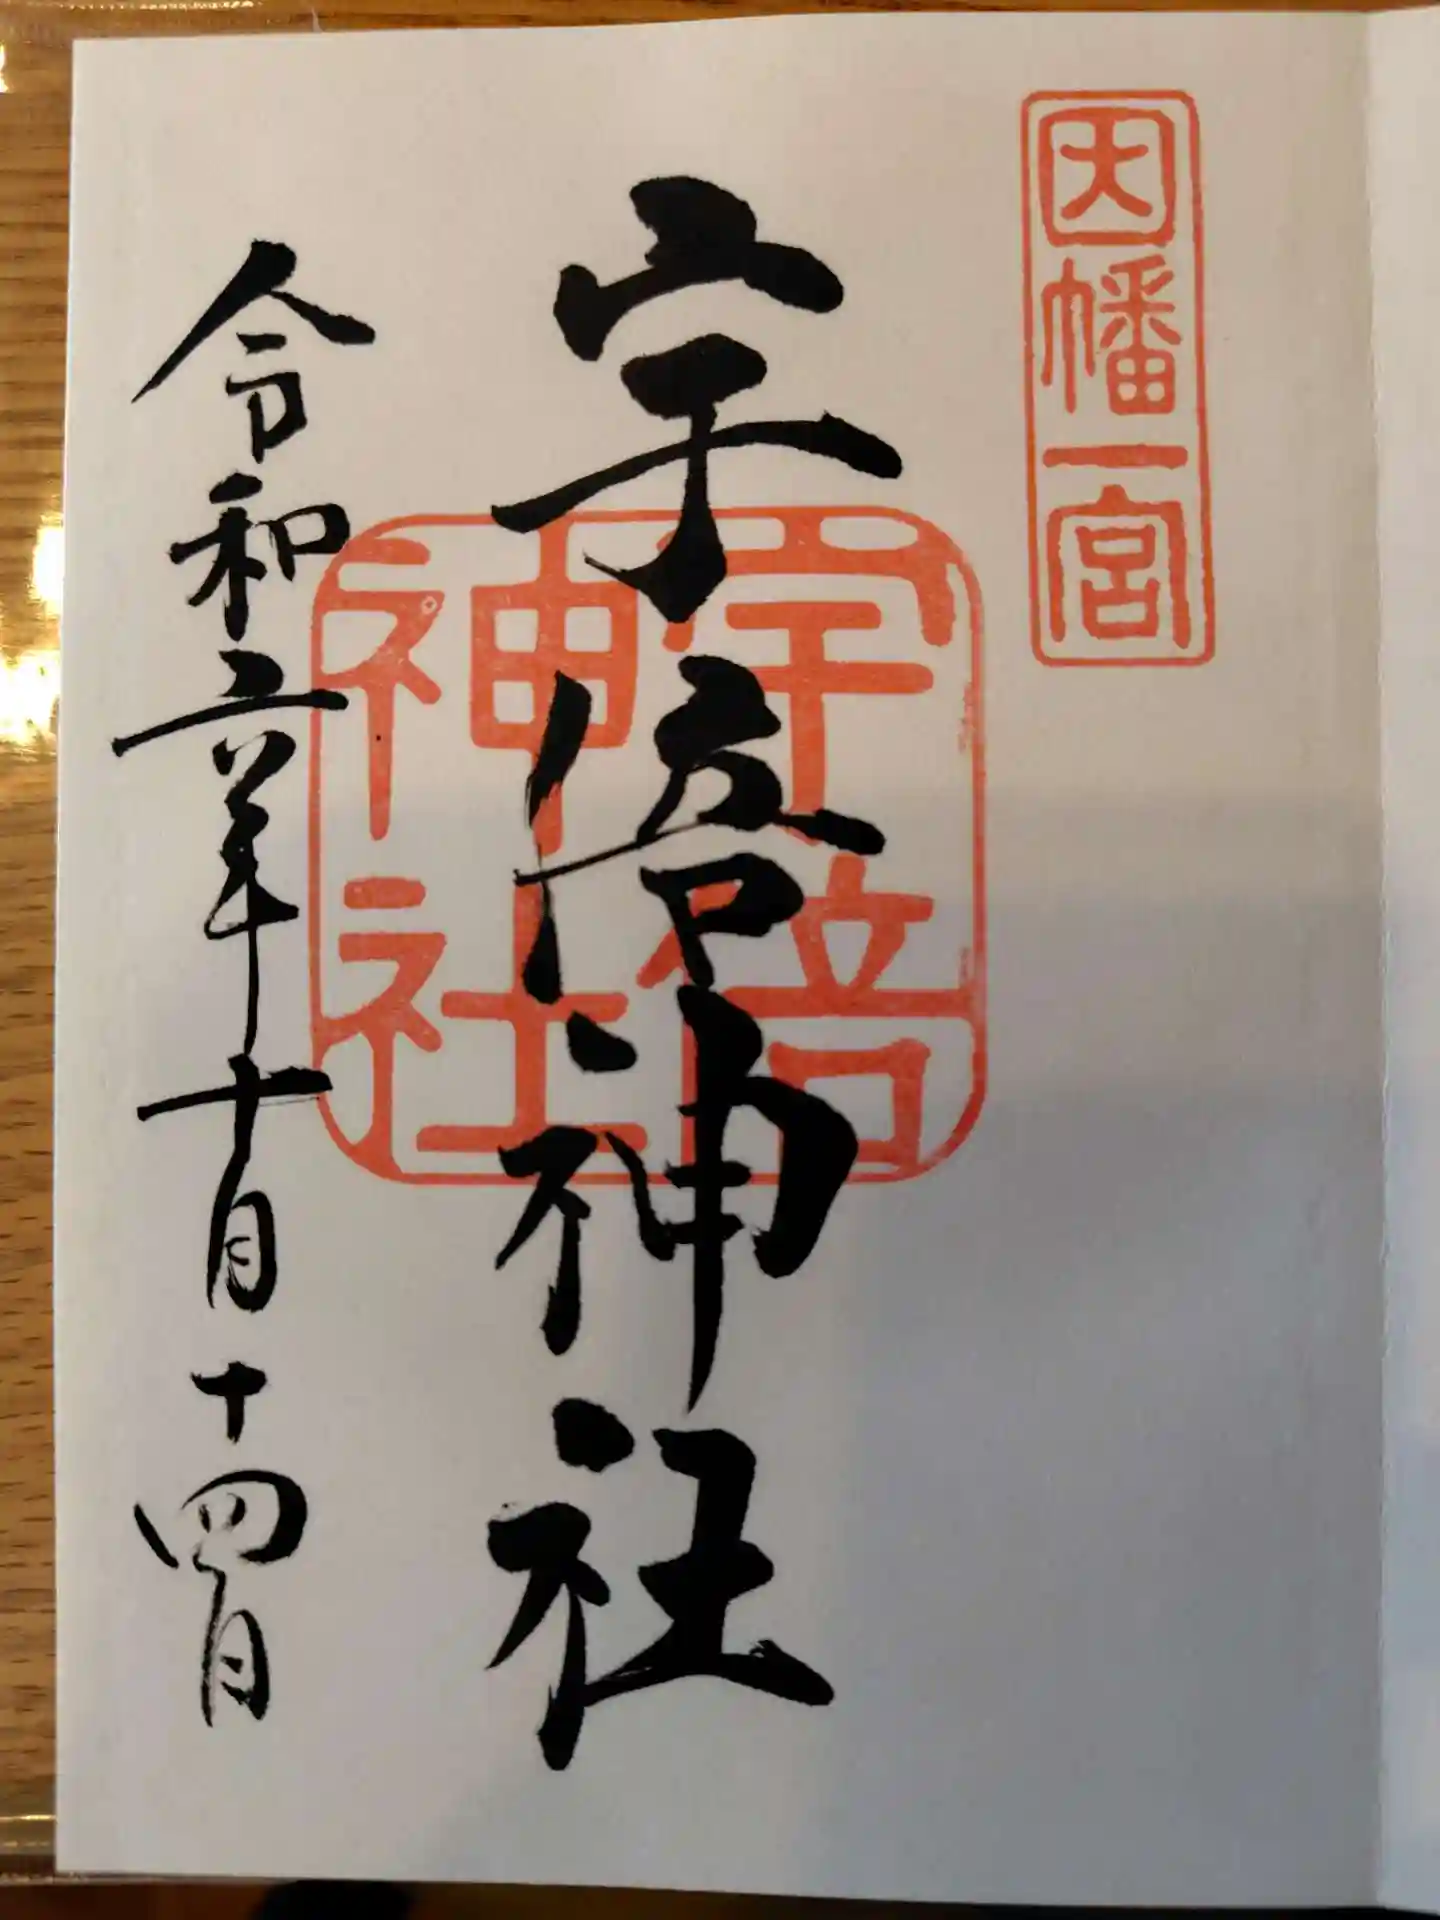 因幡一宮
宇倍神社
宇倍
神社
令和六年十月十四日